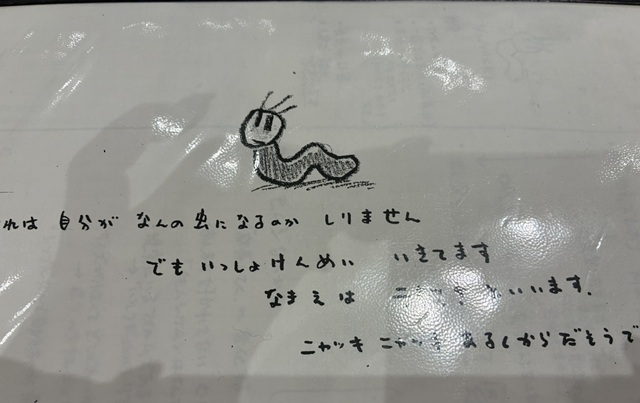 れは 自分が なんの虫になるのか しりません
でも いっしょけんめい いきてます
なまえは といいます.
ニャッキ ニャッキ あるくからだそうで